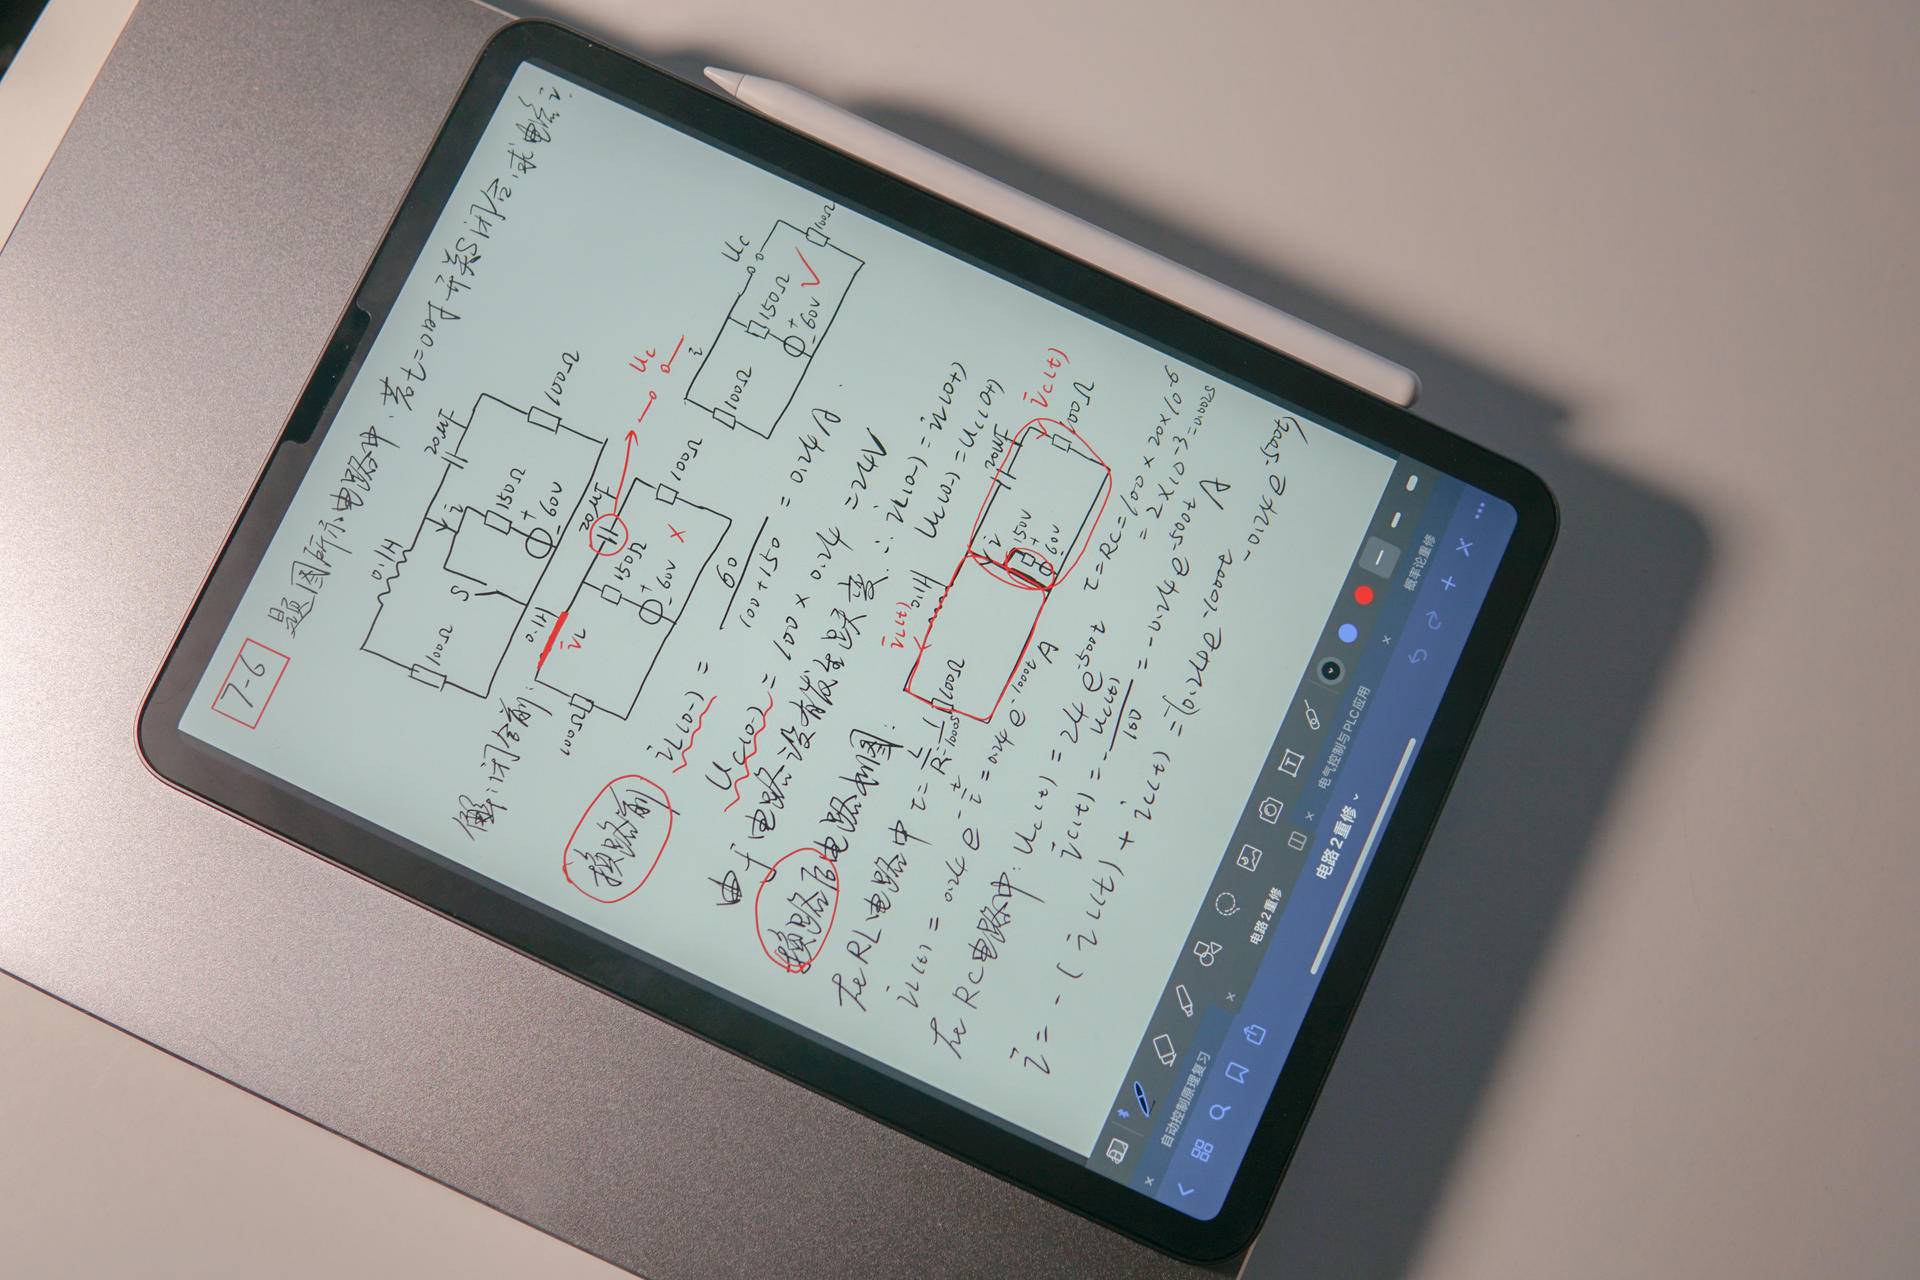 7-6
题图所示电路中.若t=0时开关S闭合.求电流i.
0.1H
20μF
100Ω
S
i
150Ω
+
-60V
100Ω
解:闭合前:
0.1H
20μF
iL
100Ω
150Ω
+
-60V
×
100Ω
uc
i
uc
100Ω
150Ω
+
-60V
√
100Ω
换路前
iL(0-) = 60/(100+150) = 0.24A.
uc(0-) = 100 × 0.24 = 24V
由于电路没有发生跃变.∴ iL(0-) = iL(0+)
uc(0-) = uc(0+)
换路后电路如图:
iL(t)
0.1H
20μF
ic(t)
100Ω
i
150V
+
-60V
100Ω
在RL电路中 τ = L/R = 1/1000s
iL(t) = 0.24e^-t/τ = 0.24e^-1000t A
在RC电路中: uc(t) = 24e^-500t
τ=RC=100×20×10^-6
= 2×10^-3 = 0.002s
ic(t) = -uc(t)/100 = -0.24e^-500t A
i = -(iL(t) + ic(t)) = (0.24e^-1000t - 0.24e^-500t)
自动控制原理复习 ×
电路2重修 ×
电气控制与PLC应用 ×
概率论重修
电路2重修